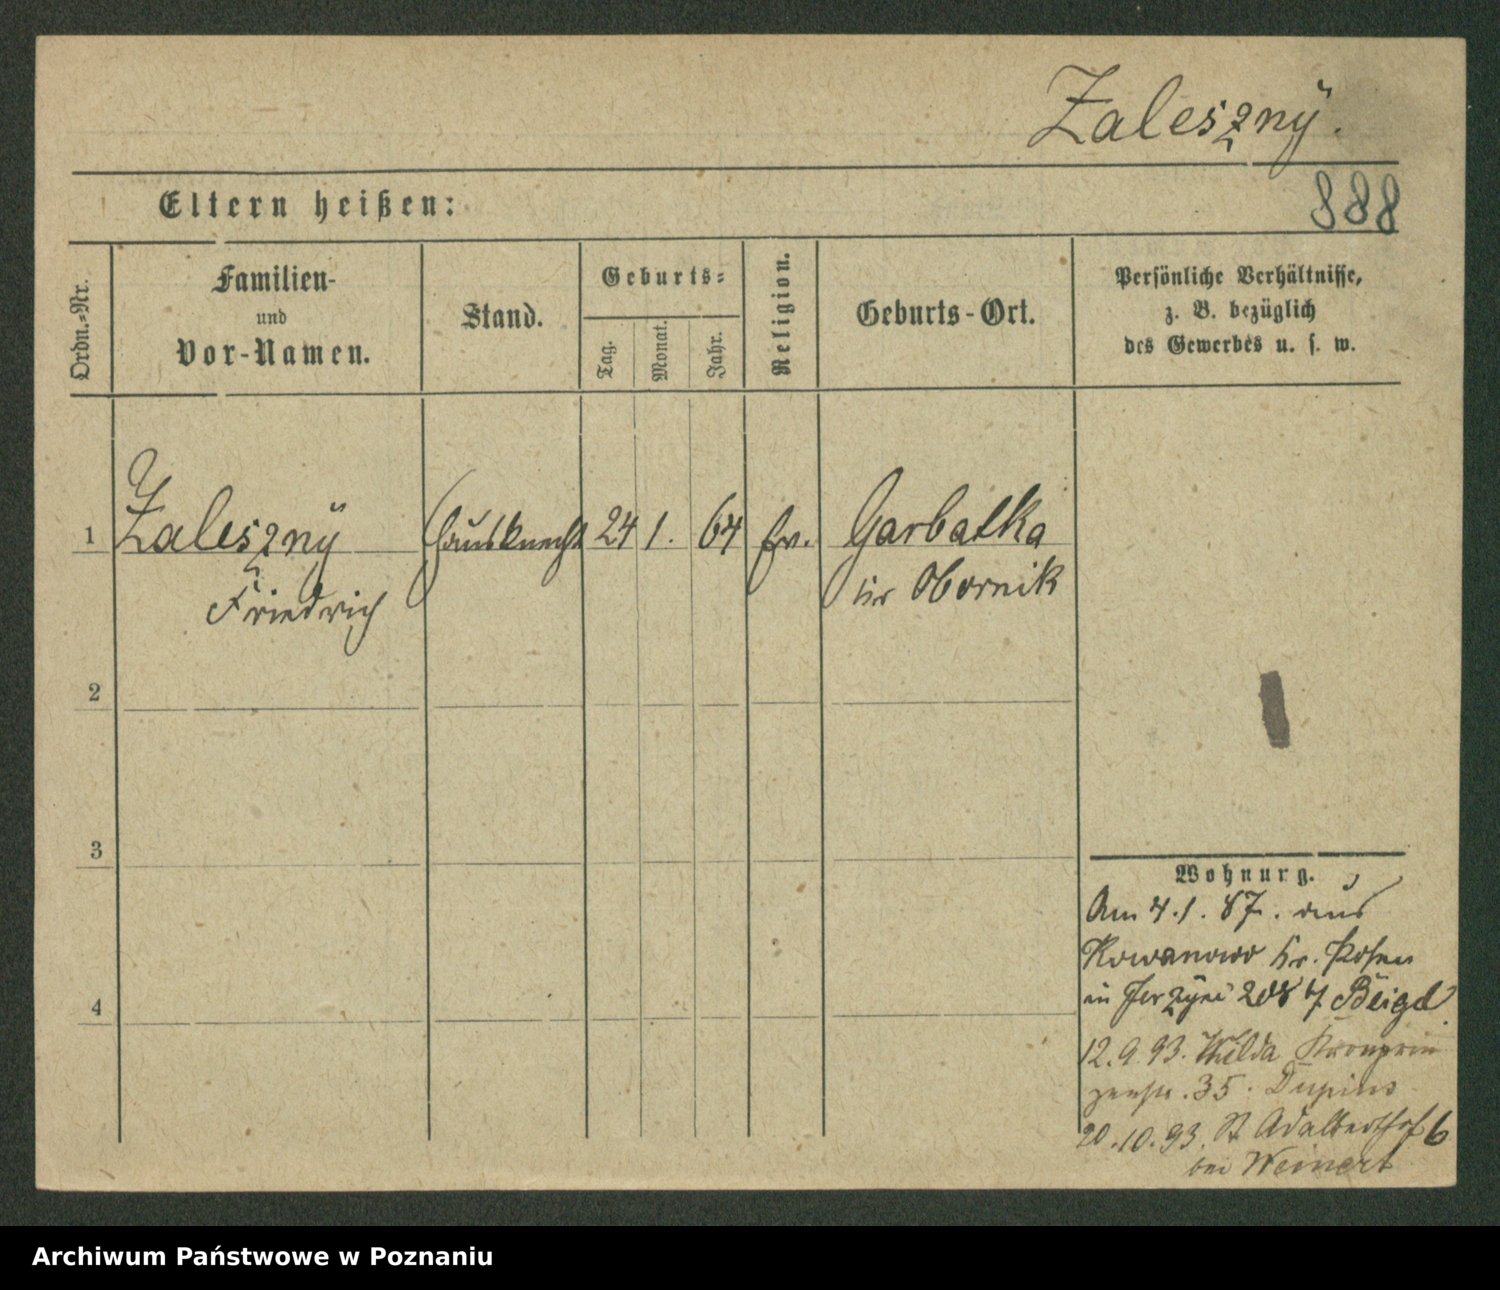 Zaleszny.
888
Eltern heißen:
Ordn.-Nr.
Familien-
und
Vor-Namen.
Stand.
Geburts-
Tag.
Monat.
Jahr.
Religion.
Geburts-Ort.
Persönliche Verhältnisse,
z. B. bezüglich
des Gewerbes u. s. w.
1 Zaleszny Hausknecht 24 1. 64 ev. Garbatka
Friedrich Kr Obornik
2
3
4
Wohnung.
Am 4.1.87. aus
Kowanowo Kr. Posen
in Jerzyce 208
12.9.93. Wilda Kronprin
zenstr. 35.
20.10.93. St Adalbertstr 6
bei Weinert